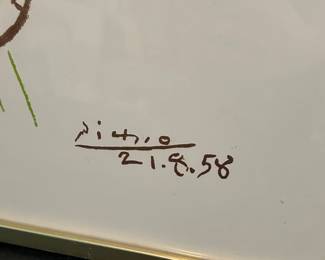 Picasso
21.8.58